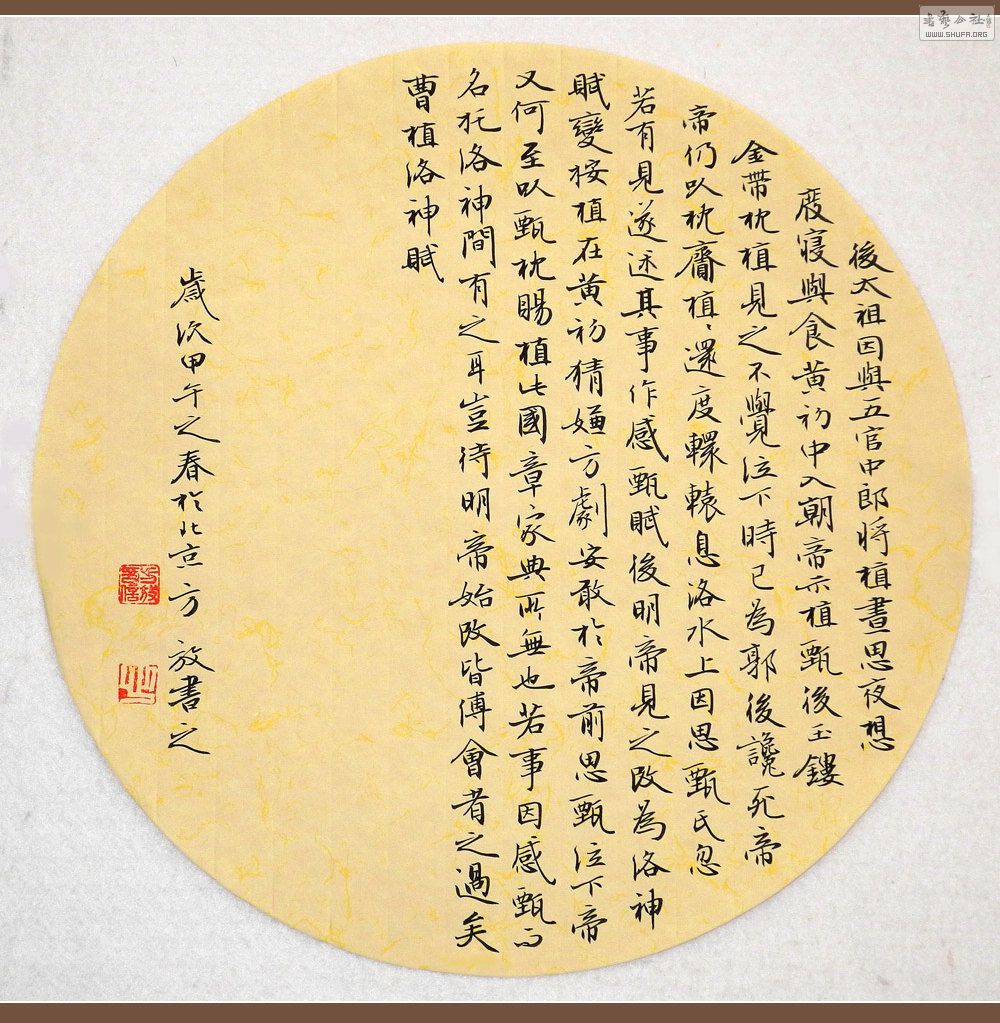 後太祖因與五官中郎將植晝思夜想
廢寢與食黃初中入朝帝示植甄後玉鏤
金帶枕植見之不覺泣下時已為郭後讒死帝
帝仍以枕齎植植還度轘轅息洛水上因思甄氏忽
若有見遂述其事作感甄賦後明帝見之改為洛神
賦變按植在黃初猜嫌方劇安敢於帝前思甄泣下帝
又何至以甄枕賜植此國章家典所無也若事因感甄而
名托洛神間有之耳豈待明帝始改皆傅會者之過矣
曹植洛神賦
歲次甲午之春於北京方放書之
書藝公社
WWW.SHUFA.ORG